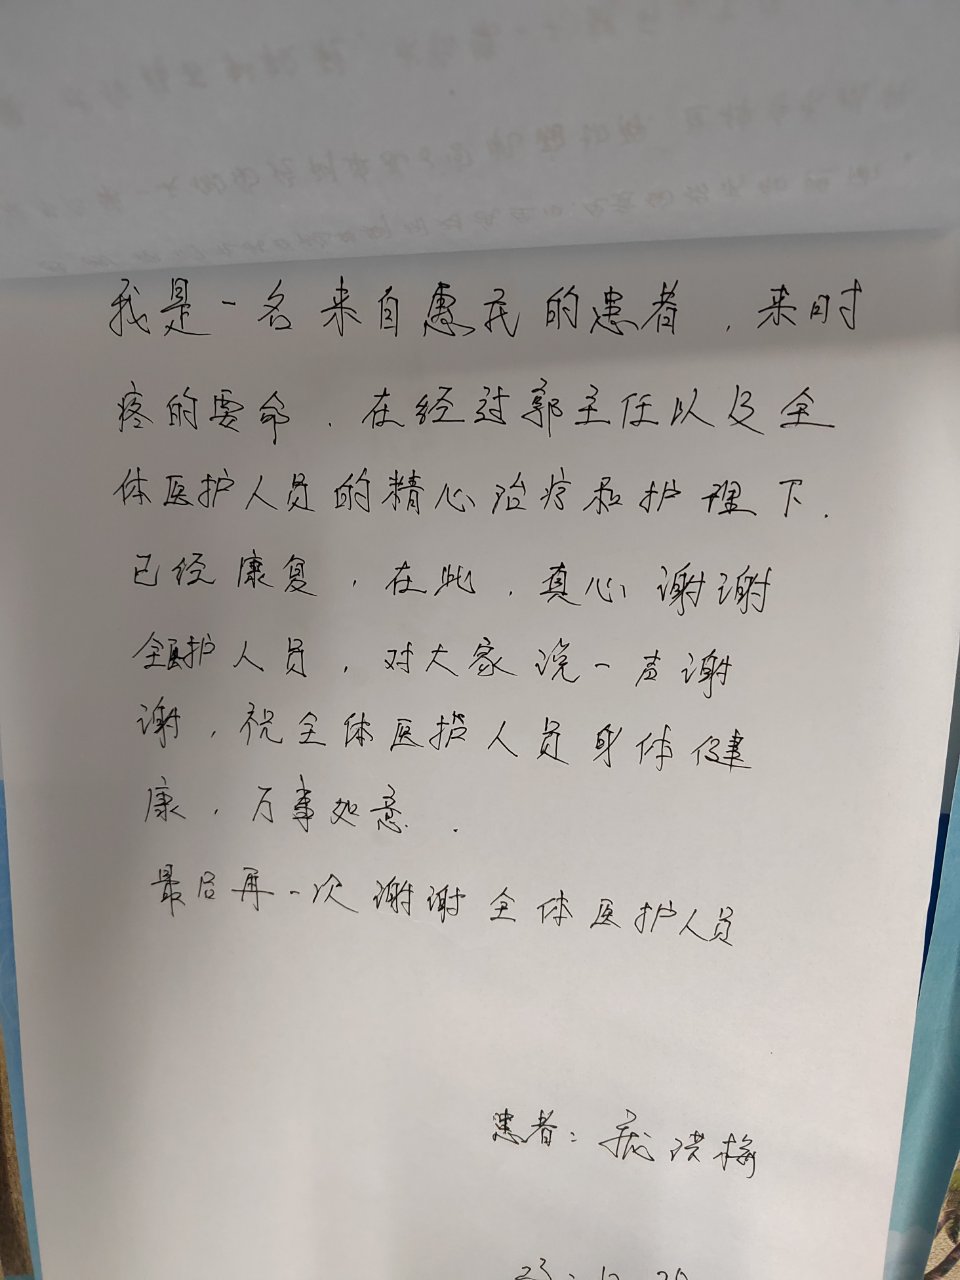 我是一名来自惠民的患者，来时
疼的要命．在经过郭主任以及全
体医护人员的精心治疗和护理下．
已经康复，在此，真心谢谢
全医护人员，对大家说一声谢
谢，祝全体医护人员身体健
康，万事如意．
最后再一次谢谢全体医护人员
患者：洪梅